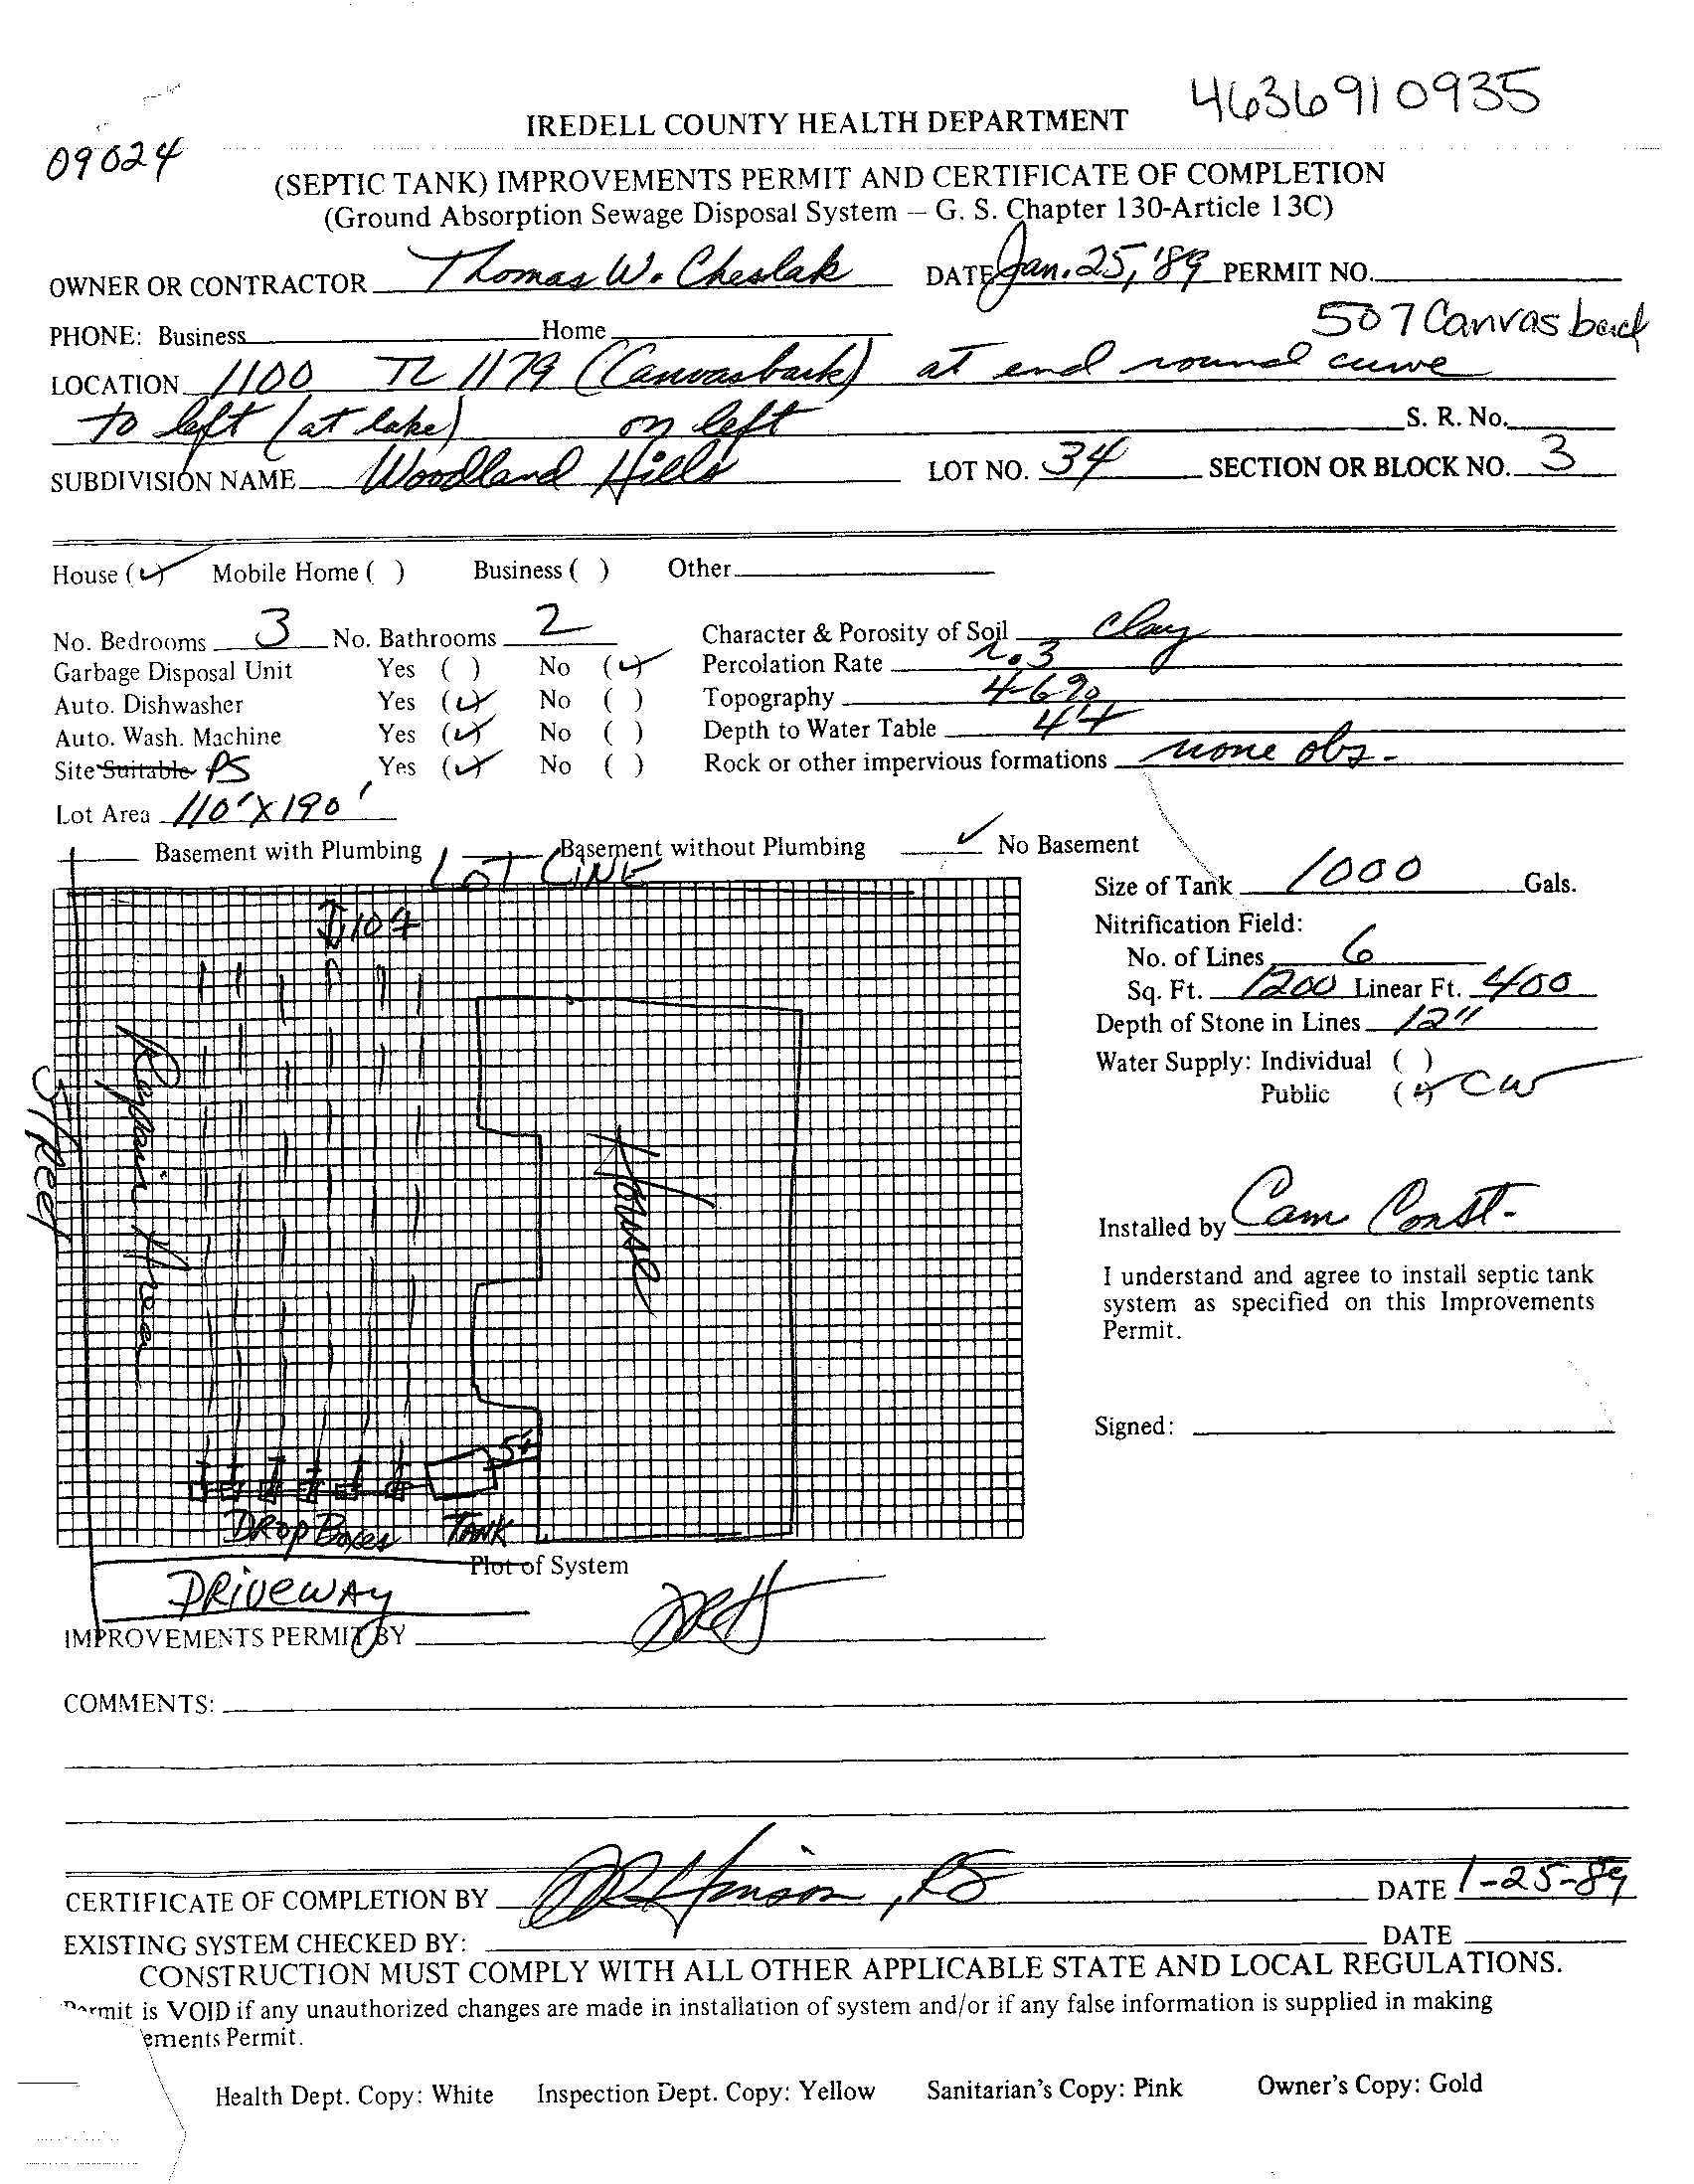 4636910935
IREDELL COUNTY HEALTH DEPARTMENT
09024
(SEPTIC TANK) IMPROVEMENTS PERMIT AND CERTIFICATE OF COMPLETION
(Ground Absorption Sewage Disposal System — G. S. Chapter 130-Article 13C)
OWNER OR CONTRACTOR Thomas W. Cheslak DATE Jan. 25, '89 PERMIT NO.
507 Canvasback
PHONE: Business Home
LOCATION 1100 TL 1179 (Canvasback) at end round curve
to left (at lake) on left S. R. No.
SUBDIVISION NAME Woodland Hills LOT NO. 34 SECTION OR BLOCK NO. 3
House (✓) Mobile Home ( ) Business ( ) Other
No. Bedrooms 3 No. Bathrooms 2 Character & Porosity of Soil clay
Garbage Disposal Unit Yes ( ) No (✓) Percolation Rate r.3
Auto. Dishwasher Yes (✓) No ( ) Topography 4-6%
Auto. Wash. Machine Yes (✓) No ( ) Depth to Water Table 4'+
Site Suitable PS Yes (✓) No ( ) Rock or other impervious formations none obs.
Lot Area 110' X 190'
Basement with Plumbing Basement without Plumbing ✓ No Basement
LOT LINE
Size of Tank 1000 Gals.
Nitrification Field:
No. of Lines 6
Sq. Ft. 1200 Linear Ft. 400
Depth of Stone in Lines 12"
Water Supply: Individual ( )
Public (✓) CW
Street
Repair Area
House
Installed by Cam Const.
I understand and agree to install septic tank
system as specified on this Improvements
Permit.
Signed:
Drop Boxes TANK
Plot of System
DRIVEWAY
IMPROVEMENTS PERMIT BY
COMMENTS:
CERTIFICATE OF COMPLETION BY Hinson, RS DATE 1-25-89
EXISTING SYSTEM CHECKED BY: DATE
CONSTRUCTION MUST COMPLY WITH ALL OTHER APPLICABLE STATE AND LOCAL REGULATIONS.
Permit is VOID if any unauthorized changes are made in installation of system and/or if any false information is supplied in making
ements Permit.
Health Dept. Copy: White Inspection Dept. Copy: Yellow Sanitarian's Copy: Pink Owner's Copy: Gold